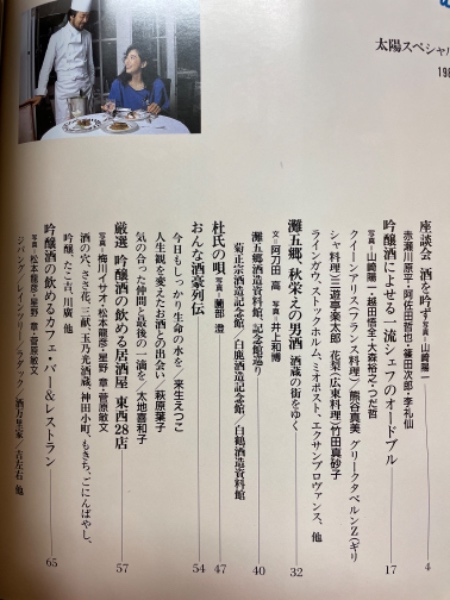 太陽スペシャル
198
座談会 酒を吟ず 写真・山崎陽一
赤瀬川原平・阿佐田哲也・篠田次郎・李礼仙
4
吟醸酒によせる一流シェフのオードブル
17
写真・山崎陽一・越田悟全・大森裕之・つだ哲
クイーンアリス(フランス料理)/熊谷真美 グリークタベルンZ(ギリ
シャ料理)/三遊亭楽太郎 花梨(広東料理)/竹田真砂子
ラインガウ、ストックホルム、ミオポスト、エクサンプロヴァンス、他
灘五郷、秋栄えの男酒 酒蔵の街をゆく
32
文=阿刀田 高 写真=井上和博
灘五郷酒造資料館、記念館巡り
40
菊正宗酒造記念館/白鹿酒造記念館/白鶴酒造資料館
杜氏の唄 写真=薗部 澄
47
おんな酒豪列伝
54
今日もしっかり生命の水を/来生えつこ
人生観を変えたお酒との出会い/萩原葉子
気の合った仲間と最後の一滴を/太地喜和子
厳選 吟醸酒の飲める居酒屋 東西28店
57
写真=梅川イサオ・松本龍彦・星野 章・菅原敏文
酒の穴、ささ花、三献、玉乃光酒蔵、神田小町、もきち、ごにんばやし、
吟醸、たこ吉、川廣 他
吟醸酒の飲めるカフェ・バー&レストラン
65
写真=松本龍彦・星野 章・菅原敏文
ジパング/レインツリー/ラダック/酒万里家/吉左右 他